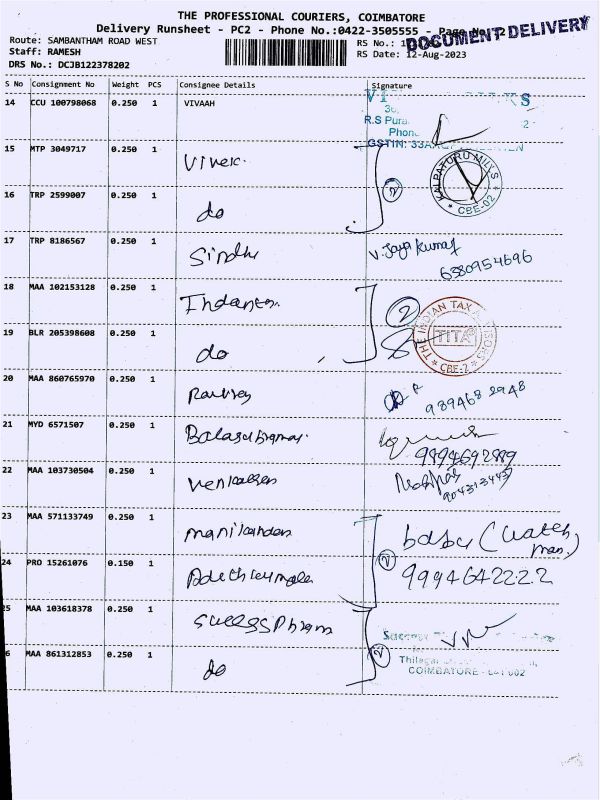 THE PROFESSIONAL COURIERS, COIMBATORE
Delivery Runsheet - PC2 - Phone No.:0422-3505555 - Page No. 2
DOCUMENT DELIVERY
Route: SAMBANTHAM ROAD WEST
RS No.:
Staff: RAMESH
RS Date: 12-Aug-2023
DRS No.: DCJB122378202
S No Consignment No Weight PCS Consignee Details Signature
14 CCU 100798068 0.250 1 VIVAAH
R.S Pura
Phone
GSTIN: 33A
15 MTP 3049717 0.250 1 Vivek. 2
KALPATURU MILLS * CBE-02 *
16 TRP 2599007 0.250 1 do
17 TRP 8186567 0.250 1 Sindhu V. Jaya Kumar
6380954696
18 MAA 102153128 0.250 1 2
THE INDIAN TAX TITA * CBE-2 *
19 BLR 205398608 0.250 1 do
20 MAA 860765970 0.250 1
989468 2948
21 MYD 6571507 0.250 1
9894692889
22 MAA 103730504 0.250 1
23 MAA 571133749 0.250 1 manikandan babu (watch man.)
24 PRO 15261076 0.150 1 2 9994642222
25 MAA 103618378 0.250 1
Success
6 MAA 861312853 0.250 1 do 2
COIMBATORE - 641 002